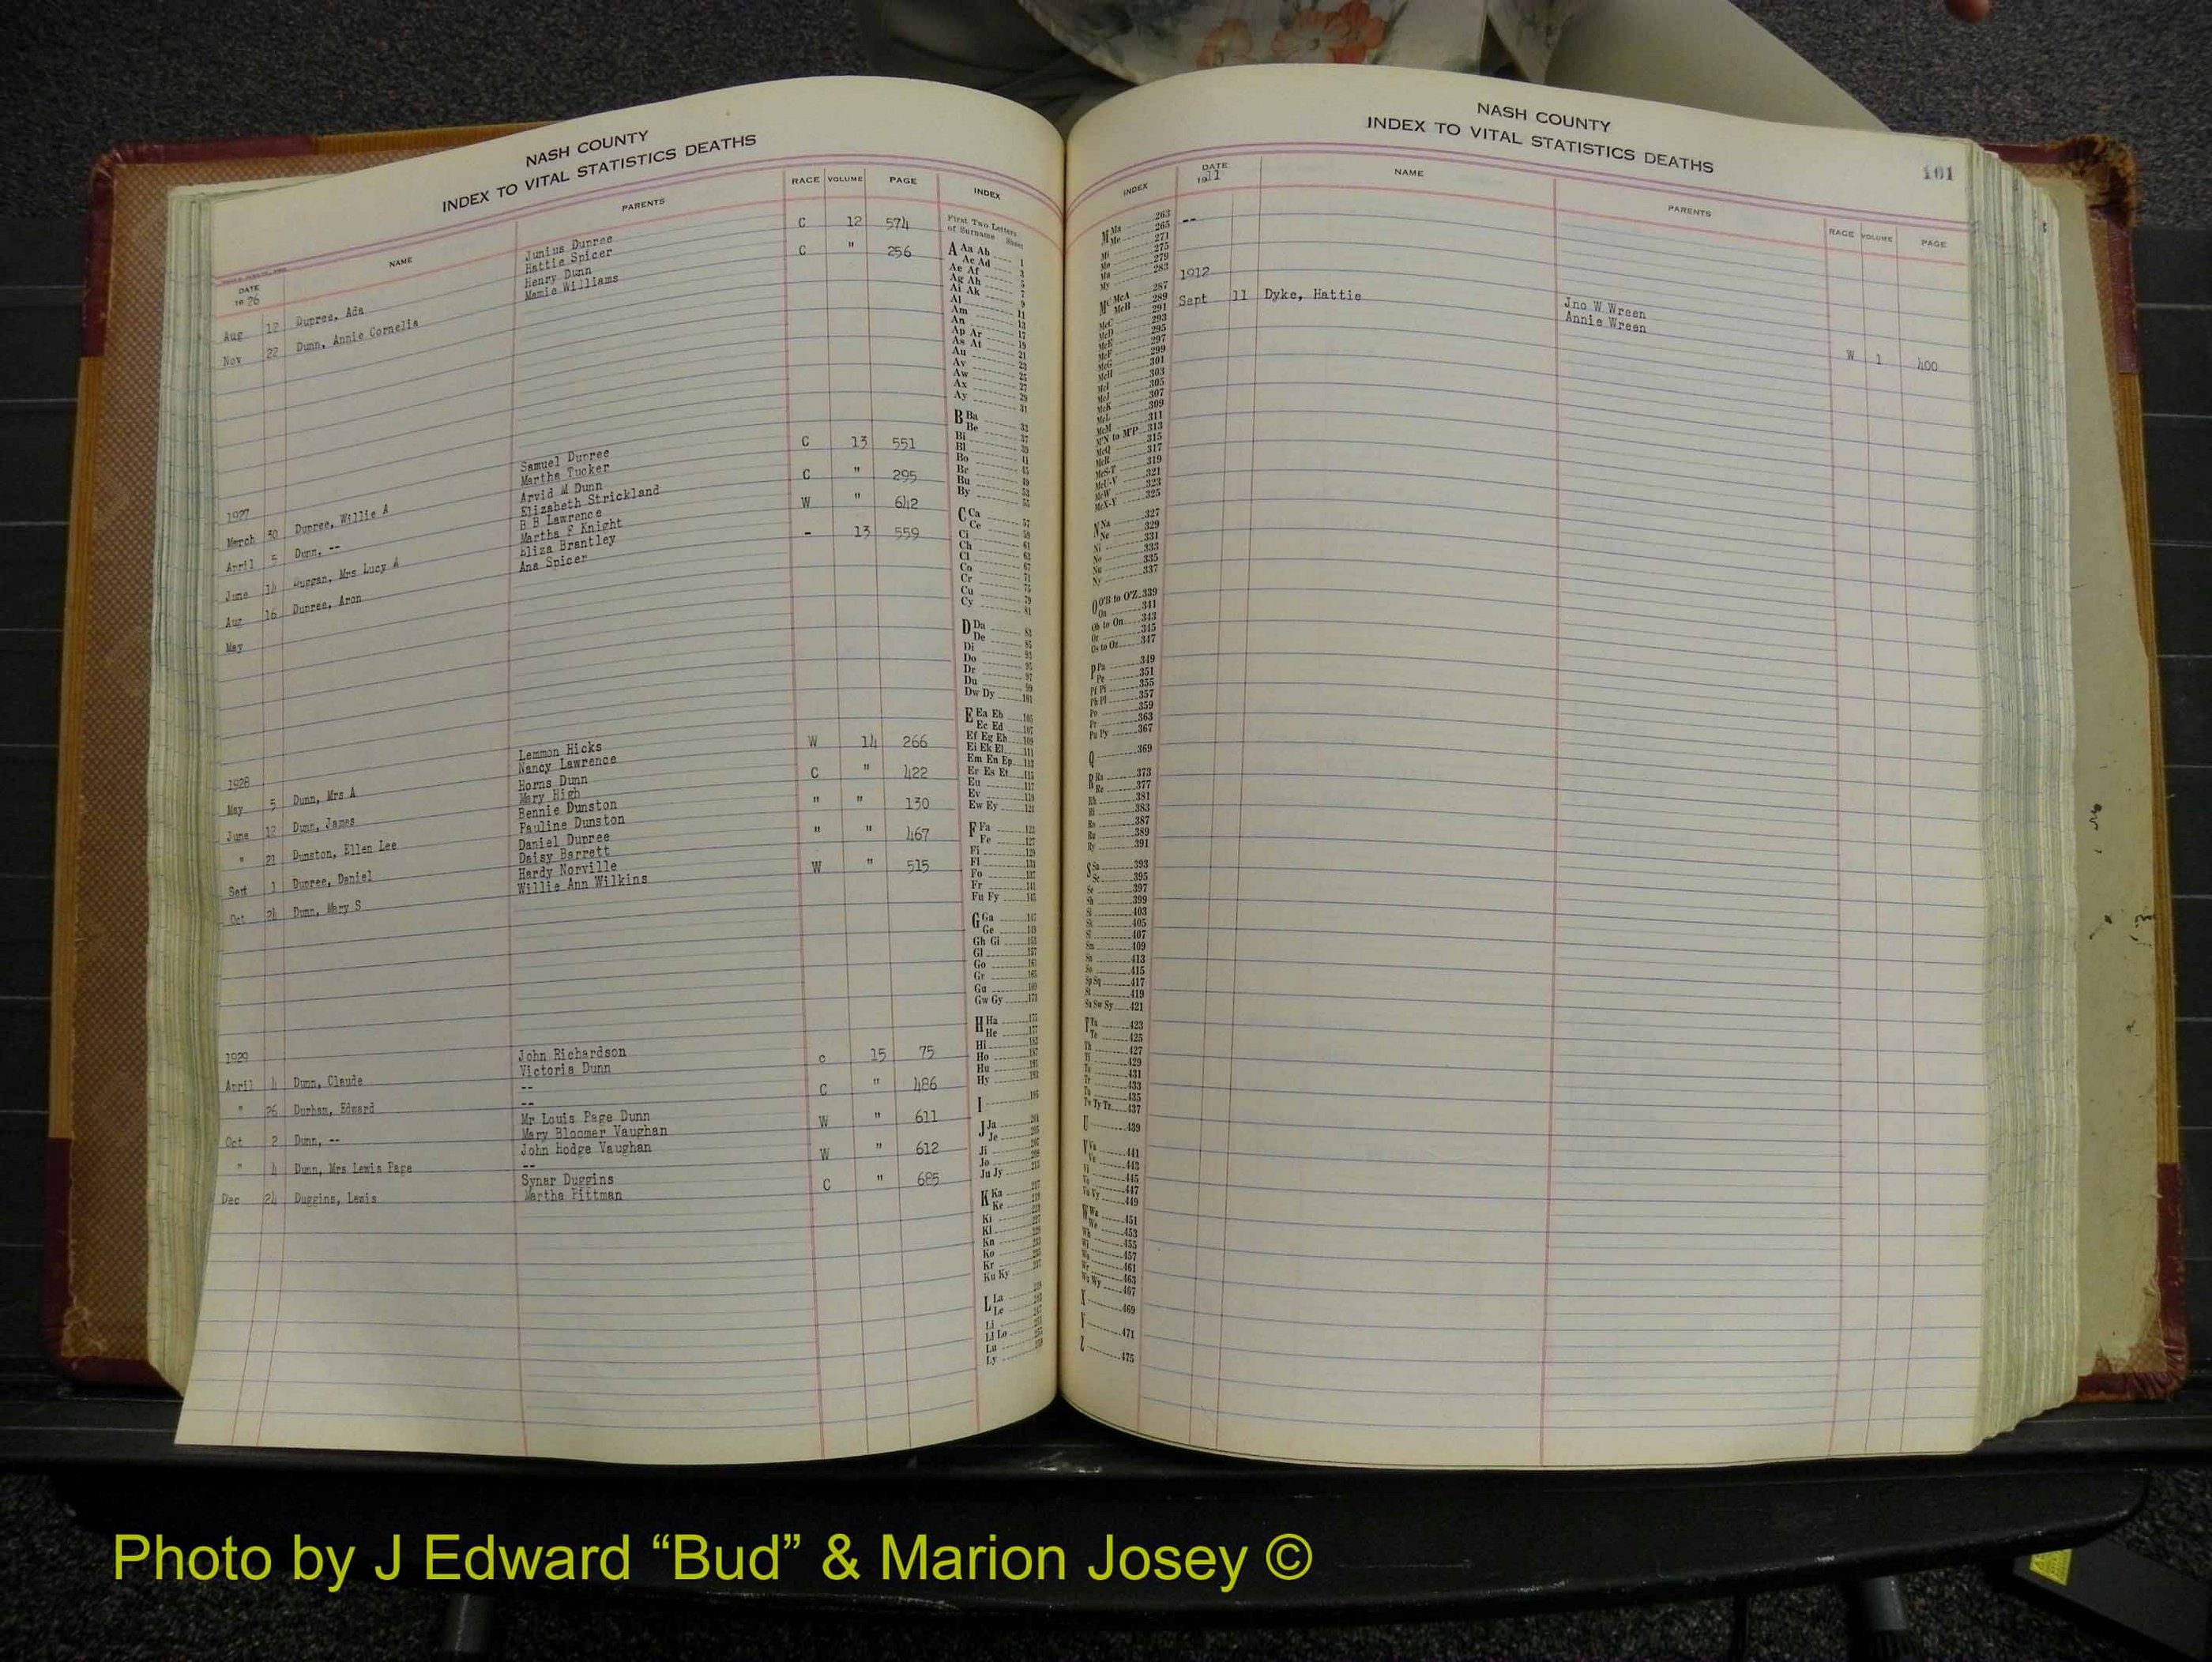 NASH COUNTY
INDEX TO VITAL STATISTICS DEATHS
DATE NAME PARENTS RACE VOLUME PAGE INDEX
1926
Aug 12 Dupree, Ada Junius Dupree C 12 574
Hattie Spicer
Nov 22 Dunn, Annie Cornelia Henry Dunn C " 256
Mamie Williams
1927
March 30 Dupree, Willie A Samuel Dupree C 13 551
Martha Tucker
April 5 Dunn, -- Arvid M Dunn C " 295
Elizabeth Strickland
June 14 Duggan, Mrs Lucy A B B Lawrence W " 642
Martha F Knight
Aug 16 Dupree, Aron Eliza Brantley - 13 559
Ana Spicer
May
1928
May 5 Dunn, Mrs A Lemmon Hicks W 14 266
Nancy Lawrence
June 12 Dunn, James Horns Dunn C " 422
Mary High
" 21 Dunston, Ellen Lee Bennie Dunston " " 130
Pauline Dunston
Sept 1 Dupree, Daniel Daniel Dupree " " 467
Daisy Barrett
Oct 24 Dunn, Mary S Hardy Norville W " 515
Willie Ann Wilkins
1929
April 4 Dunn, Claude John Richardson c 15 75
Victoria Dunn
" 26 Durham, Edward -- C " 486
--
Oct 2 Dunn, -- Mr Louis Page Dunn W " 611
Mary Bloomer Vaughan
" 4 Dunn, Mrs Lewis Page John Hodge Vaughan W " 612
--
Dec 24 Duggins, Lewis Synar Duggins C " 685
Martha Pittman
First Two Letters
of Surname Sheet
A Aa Ab 1
Ac Ad 3
Ae Af 5
Ag Ah 7
Ai Ak 9
Al 11
Am 13
An 17
Ap Ar 19
As At 21
Au 23
Av 25
Aw 27
Ax 29
Ay 31
B Ba 33
Be 37
Bi 39
Bl 41
Bo 45
Br 49
Bu
By 55
C Ca 57
Ce 59
Ci 61
Ch 63
Cl 67
Co 71
Cr 75
Cu 79
Cy 81
D Da 83
De 85
Di 93
Do 95
Dr 97
Du 99
Dw Dy 101
E Ea Eb 105
Ec Ed 107
Ef Eg Eh 109
Ei Ek El 111
Em En Ep 113
Er Es Et 115
Eu 117
Ev 119
Ew Ey 121
F Fa 123
Fe 127
Fi 129
Fl 131
Fo 137
Fr 141
Fu Fy 145
G Ga 147
Ge 149
Gh Gi
Gl 157
Go 161
Gr 165
Gu 169
Gw Gy 171
H Ha 175
He 177
Hi
Ho
Hu
Hy
I 195
J Ja
Je
Ji
Jo
Ju Jy
K Ka
Ke
Ki
Kl
Kn
Ko
Kr
Ku Ky
L La
Le
Li
Ll Lo
Lu
Ly
NASH COUNTY
INDEX TO VITAL STATISTICS DEATHS
101
INDEX DATE NAME PARENTS RACE VOLUME PAGE
1911
--
1912
Sept 11 Dyke, Hattie Jno W Wreen W 1 400
Annie Wreen
M Ma 263
Me 265
Mi 271
275
Mo 279
Mu 283
My
Mc McA 287
McB 289
McC 291
McD 293
McE 295
McF 297
McG 299
McH 301
McI 303
McJ 305
McK 307
McL 309
McM 311
M'N to M'P 313
McQ 315
McR 317
McS-T 319
McU-V 321
McW 323
McX-Y 325
N Na 327
Ne 329
Ni 331
No 333
Nu 335
Ny 337
O O'B to O'Z 339
Oa 341
Ob to On 343
Or 345
Os to Oz 347
P Pa 349
Pe 351
Pf Pi 355
Ph Pl 357
Po 359
Pr 363
Pu Py 367
Q 369
R Ra 373
Re 377
Rh 381
Ri 383
Ro 387
Ru 389
Ry 391
S Sa 393
Sc 395
Se 397
Sh 399
Si 403
Sk 405
Sl 407
Sm 409
Sn 413
So 415
Sp Sq 417
St 419
Su Sw Sy 421
T Ta 423
Te 425
Th 427
Ti 429
To 431
Tr 433
Tu 435
Tw Ty Tz 437
U 439
V Va 441
Ve 443
Vi 445
Vo 447
Vu Vy 449
W Wa 451
We 453
Wh 455
Wi 457
Wo 461
Wr 463
Wu Wy 467
X 469
Y 471
Z 475
Photo by J Edward “Bud” & Marion Josey ©